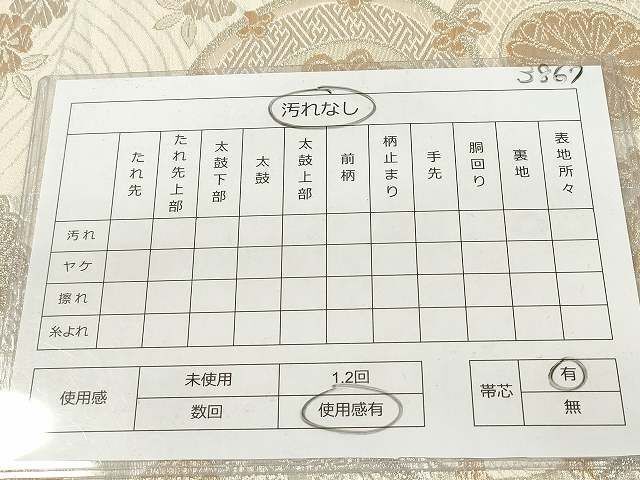 3867
汚れなし
たれ先 たれ先上部 太鼓下部 太鼓 太鼓上部 前柄 柄止まり 手先 胴回り 裏地 表地所々
汚れ
ヤケ
擦れ
糸よれ
使用感 未使用 1.2回
数回 使用感有
帯芯 有
無